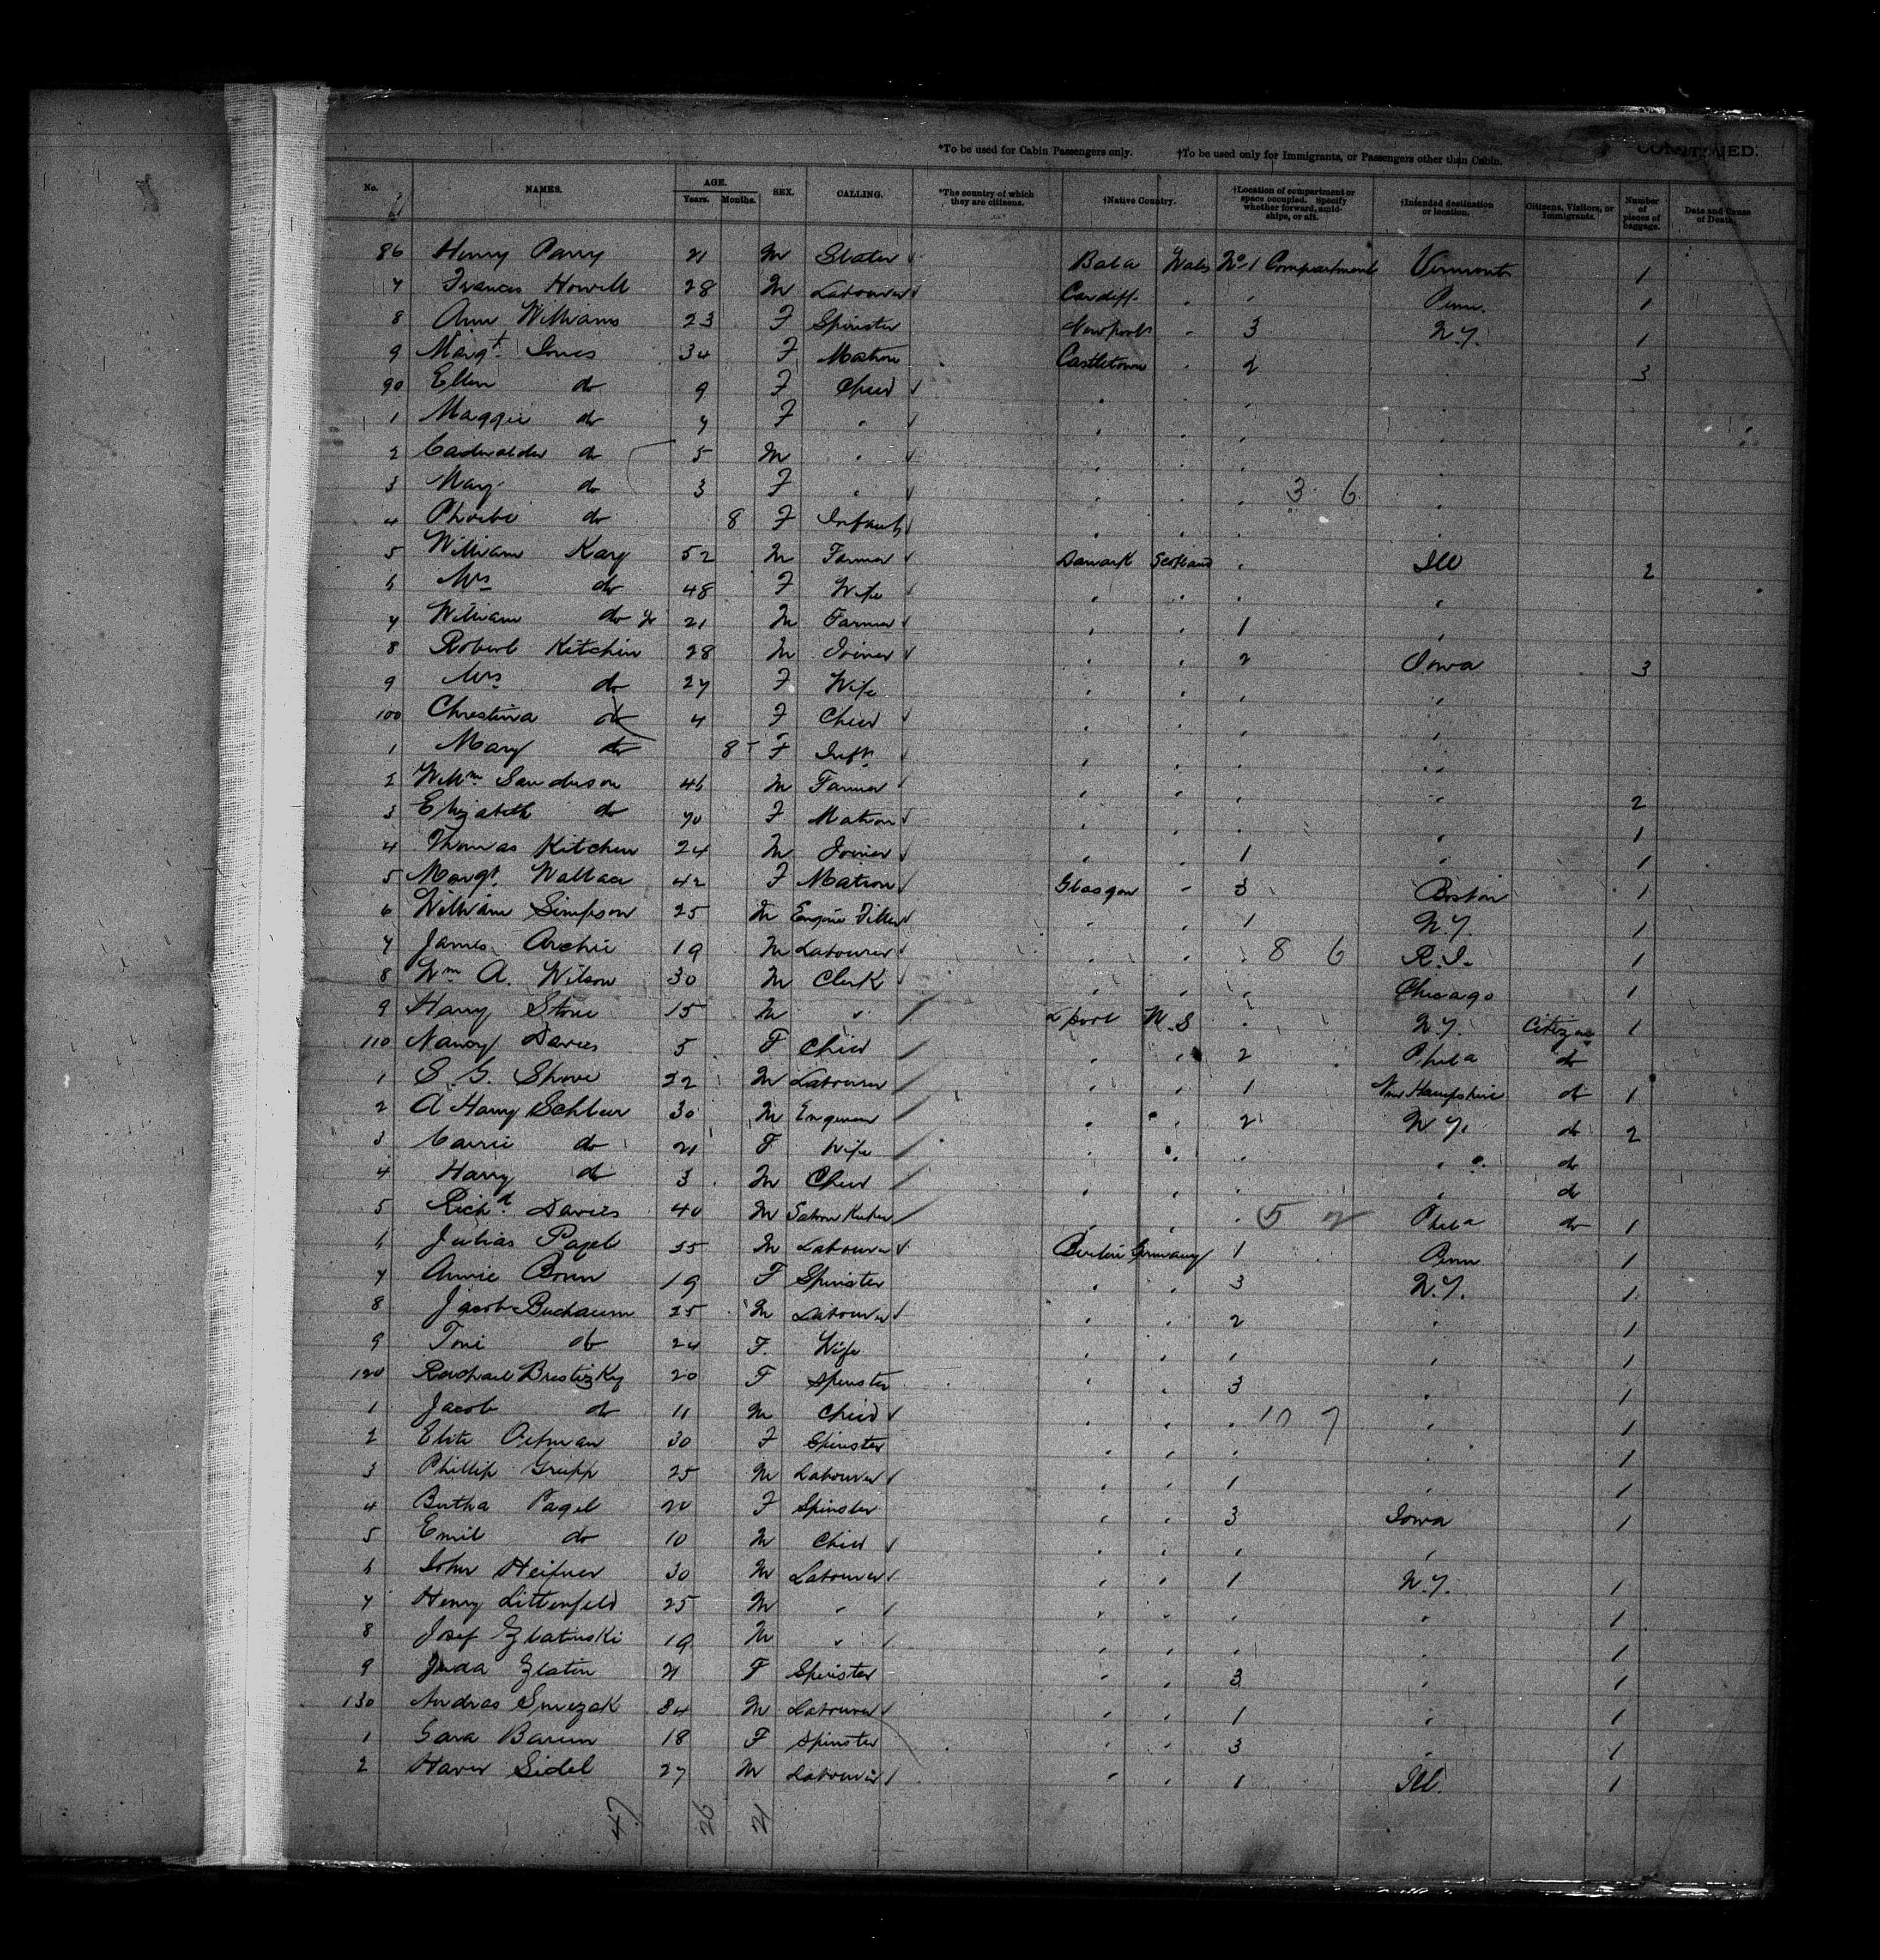 CONTINUED.
*To be used for Cabin Passengers only. †To be used only for Immigrants, or Passengers other than Cabin.
No. NAMES. AGE. Years. Months. SEX. CALLING. *The country of which they are citizens. †Native Country. †Location of compartment or space occupied. Specify whether forward, amidships, or aft. †Intended destination or location. Citizens, Visitors, or Immigrants. Number of pieces of baggage. Date and Cause of Death.
86 Henry Parry 21 M Slater Bala Wales No. 1 Compartment Vermont 1
7 Frances Howell 28 M Labourer Cardiff " " Penn. 1
8 Ann Williams 23 F Spinster Newport " 3 N.Y. 1
9 Margt. Jones 34 F Matron Castletown " 2 " 3
90 Ellen do 9 F Child " " " "
1 Maggie do 7 F " " " " "
2 Cadwalder do 5 M " " " " "
3 Mary do 3 F " " " " 3 6 "
4 Phoebe do 8 F Infant " " " "
5 William Kay 52 M Farmer Lanark Scotland " Ill 2
6 Mrs do 48 F Wife " " " "
7 William do Jr 21 M Farmer " " 1 "
8 Robert Kitchin 28 M Joiner " " 2 Iowa 3
9 Mrs do 27 F Wife " " " "
100 Christina do 4 F Child " " " "
1 Mary do 8 F Inft. " " " "
2 Willm Sanderson 46 M Farmer " " " " 2
3 Elizabeth do 70 F Matron " " " " 1
4 Thomas Kitchen 24 M Joiner " " 1 " 1
5 Margt. Wallace 42 F Matron Glasgow " 3 Boston 1
6 William Simpson 25 M Engine Fitter " " 1 N.Y. 1
7 James Archie 19 M Labourer " " " 8 6 R.I. 1
8 Wm A. Wilson 30 M Clerk " " " Chicago 1
9 Harry Stone 15 M " L'pool U.S " N.Y. Citizen 1
110 Nancy Davies 5 F Child " " 2 Phila do
1 S. G. Shove 22 M Labourer " " 1 New Hampshire do 1
2 A Harry Schlur 30 M Engineer " " 2 N.Y. do 2
3 Carrie do 21 F Wife " " " " do
4 Harry do 3 M Child " " " " do
5 Richd. Davies 40 M Saloon Keeper " " " 5 2 Phila do 1
6 Julias Pagel 35 M Labourer Berlin Germany 1 Penn 1
7 Annie Bonn 19 F Spinster " " 3 N.Y. 1
8 Jacob Buchaum 25 M Labourer " " 2 " 1
9 Toni do 24 F. Wife " " " " 1
120 Raphael Brestizky 20 F Spinster " " 3 " 1
1 Jacob do 11 M Child " " " 10 7 " 1
2 Elite Oetman 30 F Spinster " " " " 1
3 Phillip Gripp 25 M Labourer " " 1 " 1
4 Bertha Pagel 20 F Spinster " " 3 Iowa 1
5 Emil do 10 M Child " " " "
6 John Heifner 30 M Labourer " " 1 N.Y. 1
7 Henry Littenfeld 25 M " " " " " 1
8 Josef Zlatinski 19 M " " " " " 1
9 Juda Zlatin 21 F Spinster " " 3 " 1
130 Andras Smezak 34 M Labourer " " 1 " 1
1 Sara Barun 18 F Spinster " " 3 " 1
2 Haver Sidel 27 M Labourer " " 1 Ill. 1
47 26 21